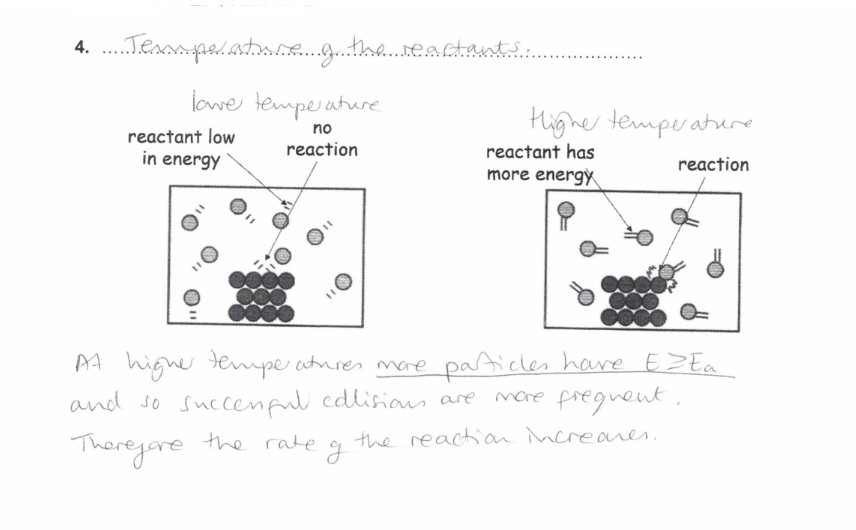 4. Temperature of the reactants.
lower temperature
reactant low
in energy
no
reaction
Higher temperature
reactant has
more energy
reaction
At higher temperatures more particles have E≥Ea
and so successful collisions are more frequent.
Therefore the rate of the reaction increases.